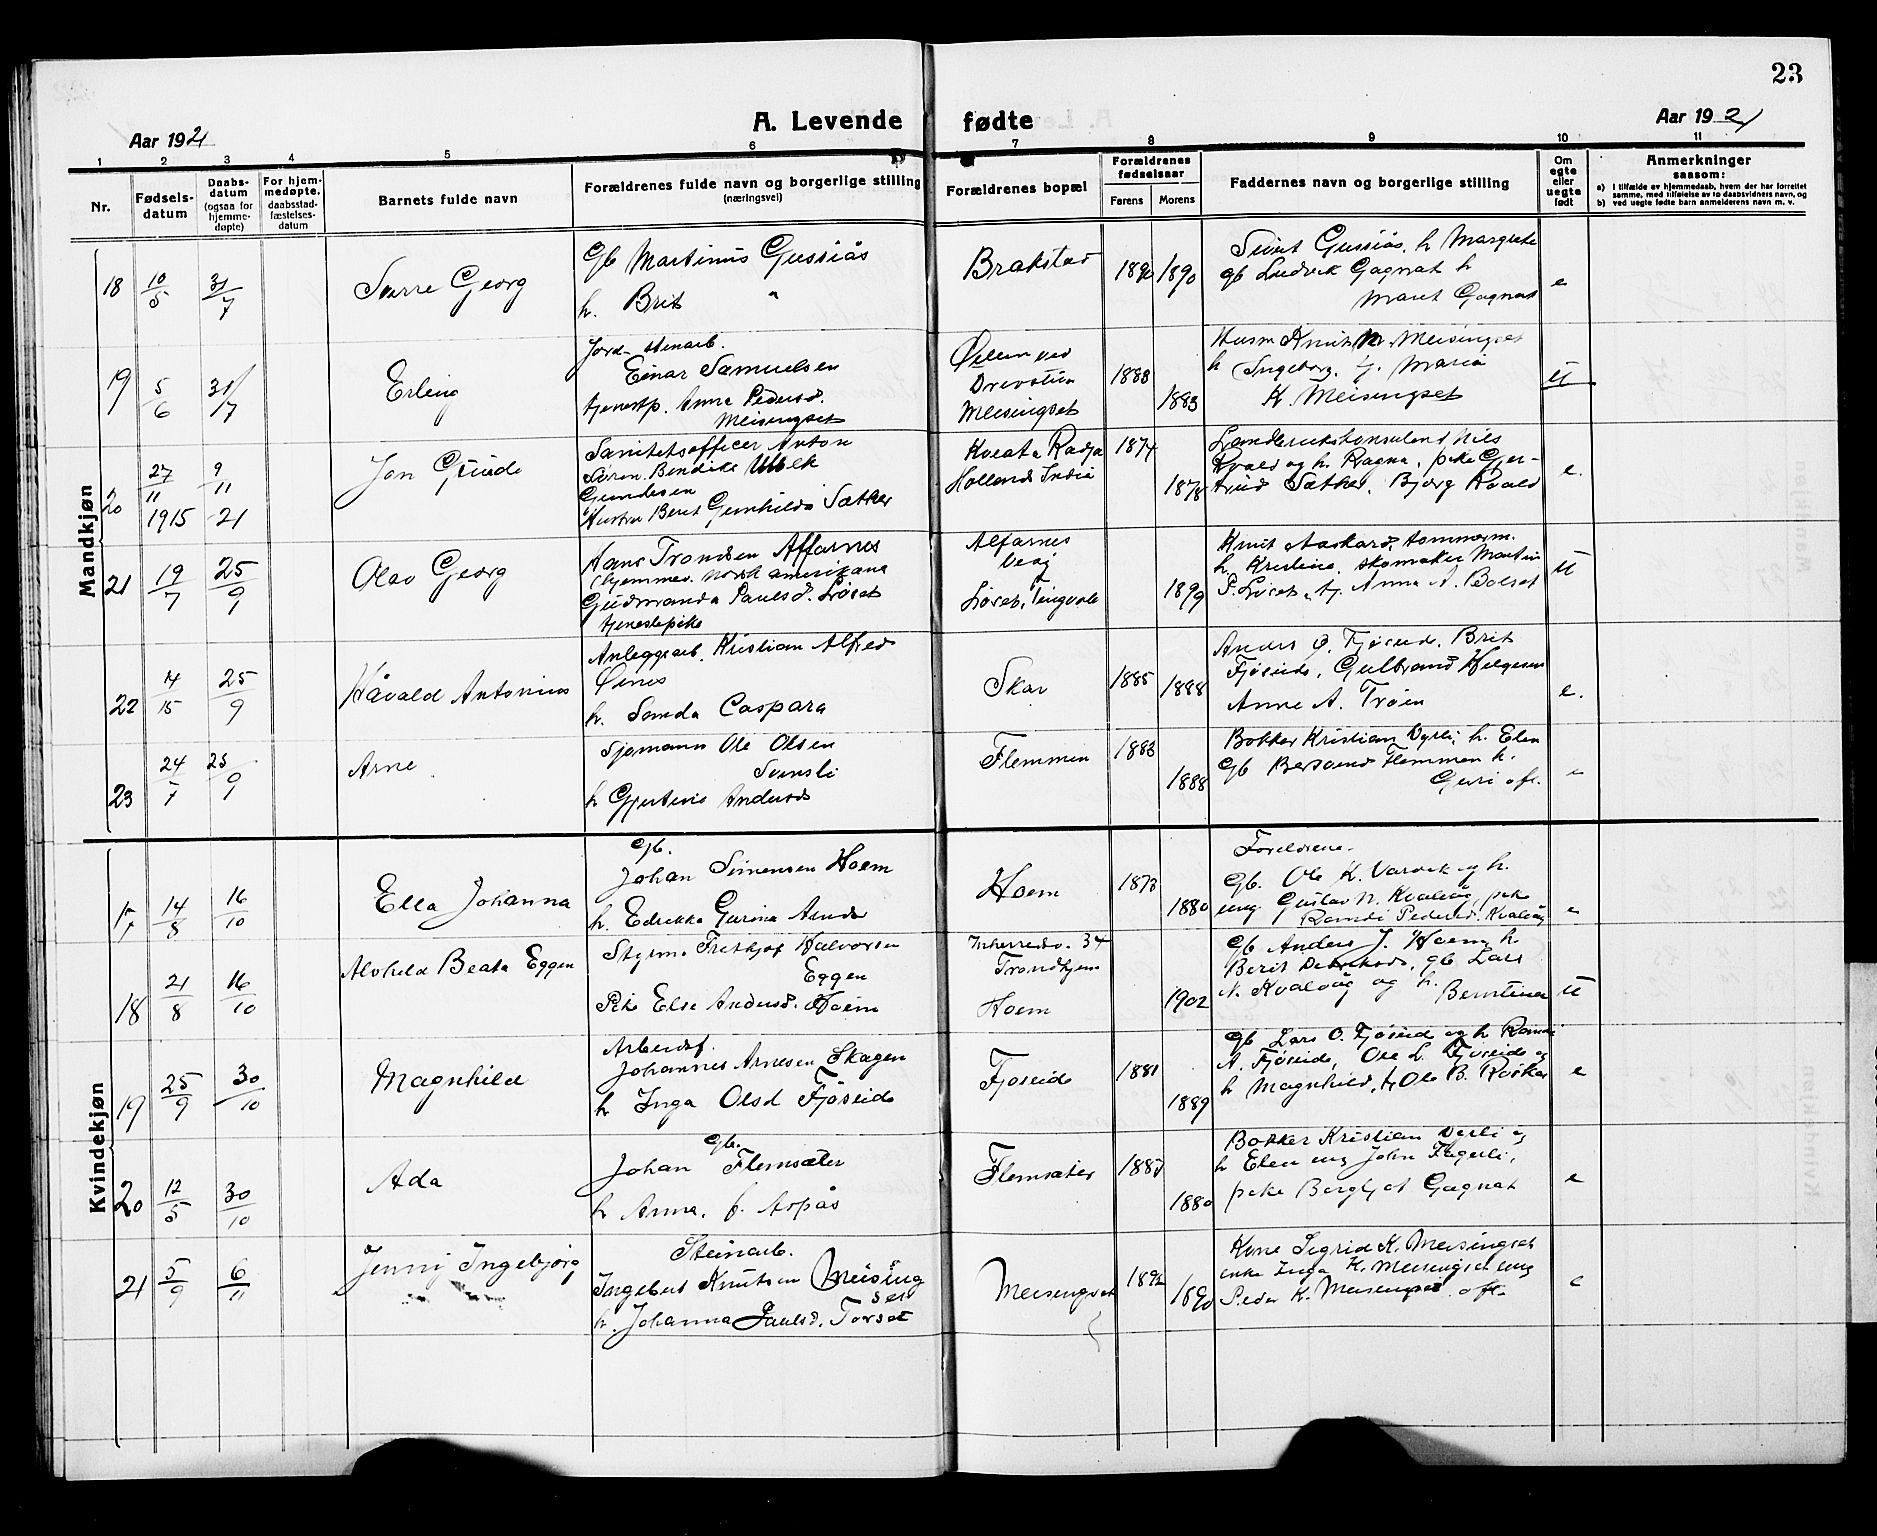 23
A. Levende fødte
Aar 1921
Aar 1921
1 2 3 4 5 6 7 8 9 10 11
Nr.
Fødsels-
datum
Daabs-
datum
(ogsaa for
hjemme-
døpte)
For hjem-
medøpte,
daabsstad-
fæstelses-
datum
Barnets fulde navn
Forældrenes fulde navn og borgerlige stilling
(næringsvei)
Forældrenes bopæl
Forældrenes
fødselsaar
Farens Morens
Faddernes navn og borgerlige stilling
Om
egte
eller
uegte
født
Anmerkninger
saasom:
a) i tilfælde av hjemmedaab, hvem der har forrettet
samme, med tilføielse av to daabsvidners navn, og
b) ved uegte fødte barn anmelderens navn m. v.
Mandkjøn
18 10/5 31/7 Sverre Georg
Gb Martinus Gussiås
h. Brit "
Brakstad 1890 1890
Sivert Gussiås, h Margrete
gb Ludvik Gagnat h
Marit Gagnat
e
19 5/6 31/7 Erling
Jord- stenarb.
Einar Samuelsen
tjenestp. Anne Pedersd.
Meisingset
Øilien ved
Drevstua
Meisingset
1888 1883
Husm Knut M. Meisingset
h Ingeborg, Maria
K. Meisingset
U
20 27/11 1915 9/11 -21 Jan Gjende
Sanitetsofficer Anton
Søren Bendike
Hustru Beret Gunhilda Sæther
Koeata Radja
Hollands India
1874 1878
Landbrukskonsulend Nils
Kvale og h. Ragna, pike Gjer-
trud Sæther, Bjørg Kvale
e.
21 19/7 25/9 Olav Georg
Hans Trondsen Alfarnes
(hjemmev. norsk amerikana
Gudmunda Paulsd. Løset
tjenestepike
Alfarnes
Veøy
Løset, Tingvoll
1899
Knut Aaskard, tømmerm.
h. Kristine, skomaker Martin
P. Løset, tj. Anna A. Bolset
U
22 14/15 25/9 Håvald Antonius
Anleggsarb. Kristian Alfred
Øines
h. Caspara
Skar 1885 1888
Anders O. Fjøseide, Brit
Fjøseide, Gulbrand Helgesen
Anne A. Trøen
e.
23 24/7 25/9 Arne
Sjømann Ole Olsen
Svensli
h Gjertine Andersd
Flemmen 1883 1888
Bøkker Kristian Vyrli, h. Elen
Gb Bersvend Flemmen h.
Guri ofl.
e
Kvindekjøn
17 14/8 16/10 Ella Johanna
Gb.
Johan Simensen Hoem
h. Edrikka Gurina Andersd
Hoem 1873 1880
Foreldrene.
Gb. Ole K. Varvik og h.
ung. Gustav N. Kvalvåg, pike
Randi Pedersd. Kvalvåg
e
18 21/8 16/10 Alvhild Beate Eggen
Styrm. Fritjof Halvorsen
Eggen
Pik Else Andersd. Hoem
Inherredsv. 34
Trondhjem
Hoem
1902
Gb Anders J. Hoem, h.
Berit, gb Lars
N. Kvalvåg og h. Berntine
U
19 25/9 30/10 Magnhild
Arbeidsf.
Johannes Arnesen Skagen
h Inga Olsd Fjøseide
Fjøseide 1881 1889
Gb Lars O. Fjøseid og h Randi
A. Fjøseide, Ole L. Fjøseide og
h Magnhild, Ole B. Røkker
e
20 12/5 30/10 Ada
Gb.
Johan Flemsæter
h Anna, f. Aspås
Flemsæter 1887 1880
Bøkker Kristian Vyrli og
h Elen ung John Fagerli,
pike Bergljot Gagnat
e
21 5/9 6/11 Jenny Ingebjørg
Steinarb.
Ingebret Knutsen Meising
set
h. Johanna Paulsd. Torset
Meisingset 1892 1890
Kone Sigrid K. Meisingset
enke Inga K. Meisingset ung
Peder K. Meisingset ofl.
e